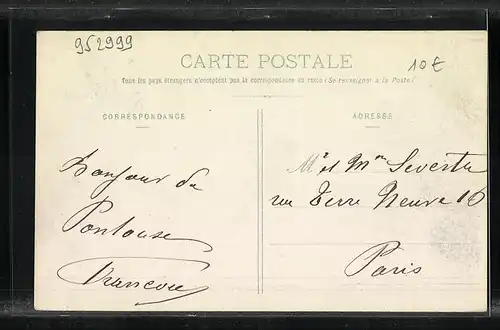 952999
10€
CARTE POSTALE
Tous les pays étrangers n'acceptent pas la correspondance au recto (Se renseigner à la Poste)
CORRESPONDANCE
ADRESSE
Bonjour de
Pontoise
Mr et Mme
rue Terre Neuve 16
Paris